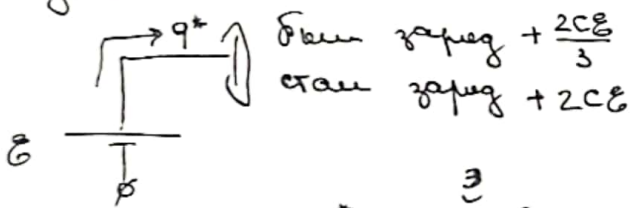 q*
был заряд + 2Cℰ/3
стал заряд + 2Cℰ
ℰ
φ